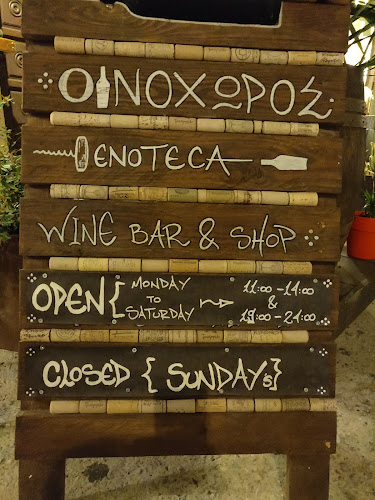 ΟΙΝΟΧΩΡΟΣ
ENOTECA
WINE BAR & SHOP
OPEN { MONDAY TO SATURDAY 11:00 - 14:00 & 19:00 - 24:00
CLOSED { SUNDAYS }